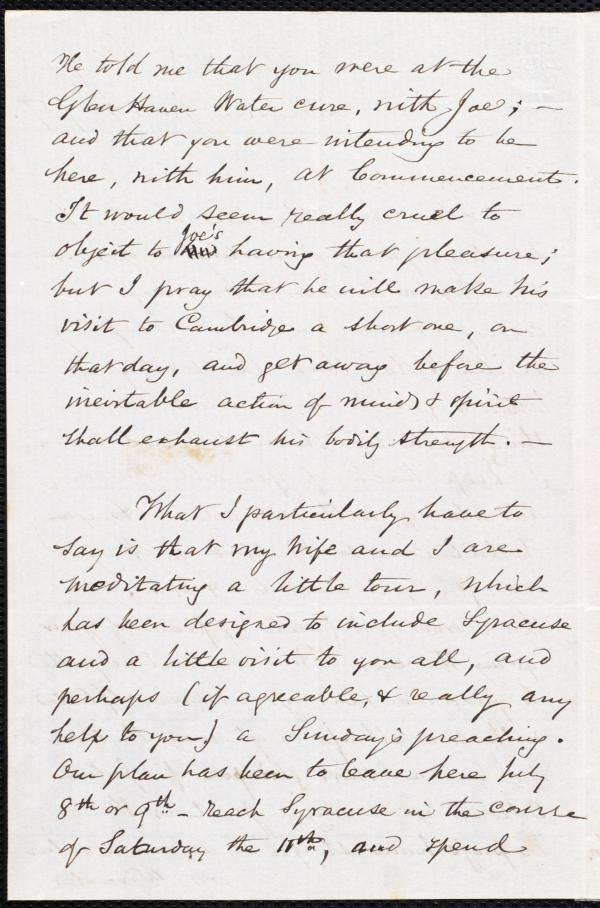 He told me that you were at the
Glen Haven Water cure, with Joe; —
and that you were intending to be
here, with him, at Commencement.
It would seem really cruel to
object to Joe's having that pleasure;
but I pray that he will make his
visit to Cambridge a short one, on
that day, and get away before the
inevitable action of mind & spirit
shall exhaust his bodily strength. —
What I particularly have to
say is that my wife and I are
meditating a little tour, which
has been designed to include Syracuse
and a little visit to you all, and
perhaps (if agreeable, & really any
help to you) a Sunday's preaching.
Our plan has been to leave here July
8th or 9th — reach Syracuse in the course
of Saturday the 11th, and spend